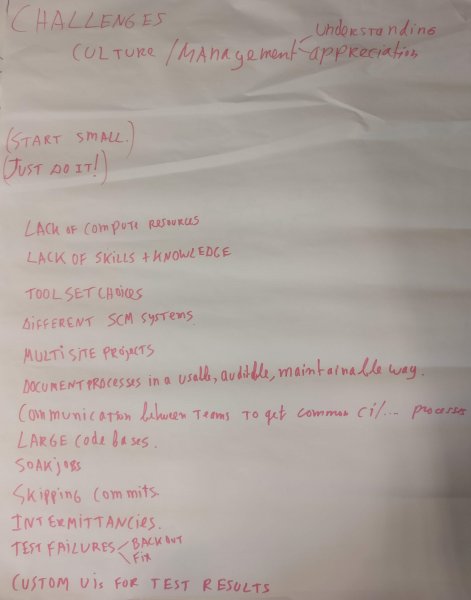 CHALLENGES
UNDERSTANDING
CULTURE / MANAGEMENT appreciation
(START SMALL.)
(JUST DO IT!)
LACK OF COMPUTE RESOURCES
LACK OF SKILLS + KNOWLEDGE
TOOL SET CHOICES
DIFFERENT SCM SYSTEMS.
MULTI SITE PROJECTS
DOCUMENT PROCESSES in a usable, auditable, maintainable way.
Communication between Teams To get common ci/... processes
LARGE Code bases.
SOAK jobs
Skipping Commits.
INTERMITTANCIES.
TEST FAILURES BACK OUT
FIX
CUSTOM UIs FOR TEST RESULTS